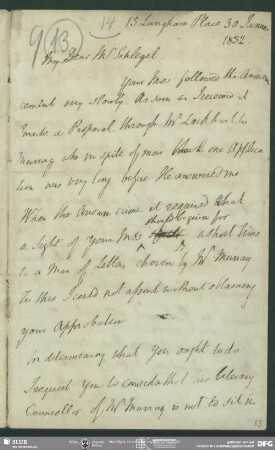 9(13) 14 13 Langham Place 30 June
1832
My Dear Mr Schlegel
Your Mss followed the
very slowly As soon as I received it
I made a Proposal through Mr Lockhart to
Murray who in spite of more than one Applica
tion was very long before He answered me
When the answer came it required that
a sight of your Mss for a short time
to a Man of Letters chosen by Mr Murray
To this I could not assent without obtaining
your Approbation
In determining what you ought to do
I request you to consider that
Counsellor of Mr Murray is not to sit in
SLUB
DFG